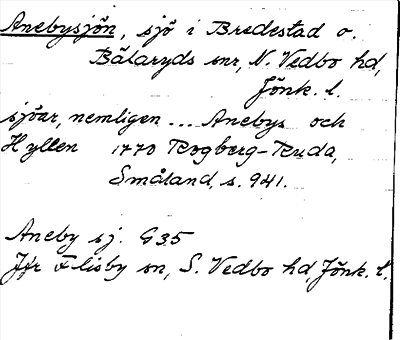 Anebysjön, sjö i Bredestad o.
Bälaryds snr, N. Vedbo hd,
Jönk. l.
sjöar, nemligen ... Anebys och
Hyllen 1770 Rogberg-Ruda,
Småland, s. 941.
Aneby sj. G35
Jfr Flisby sn, S. Vedbo hd, Jönk. l.